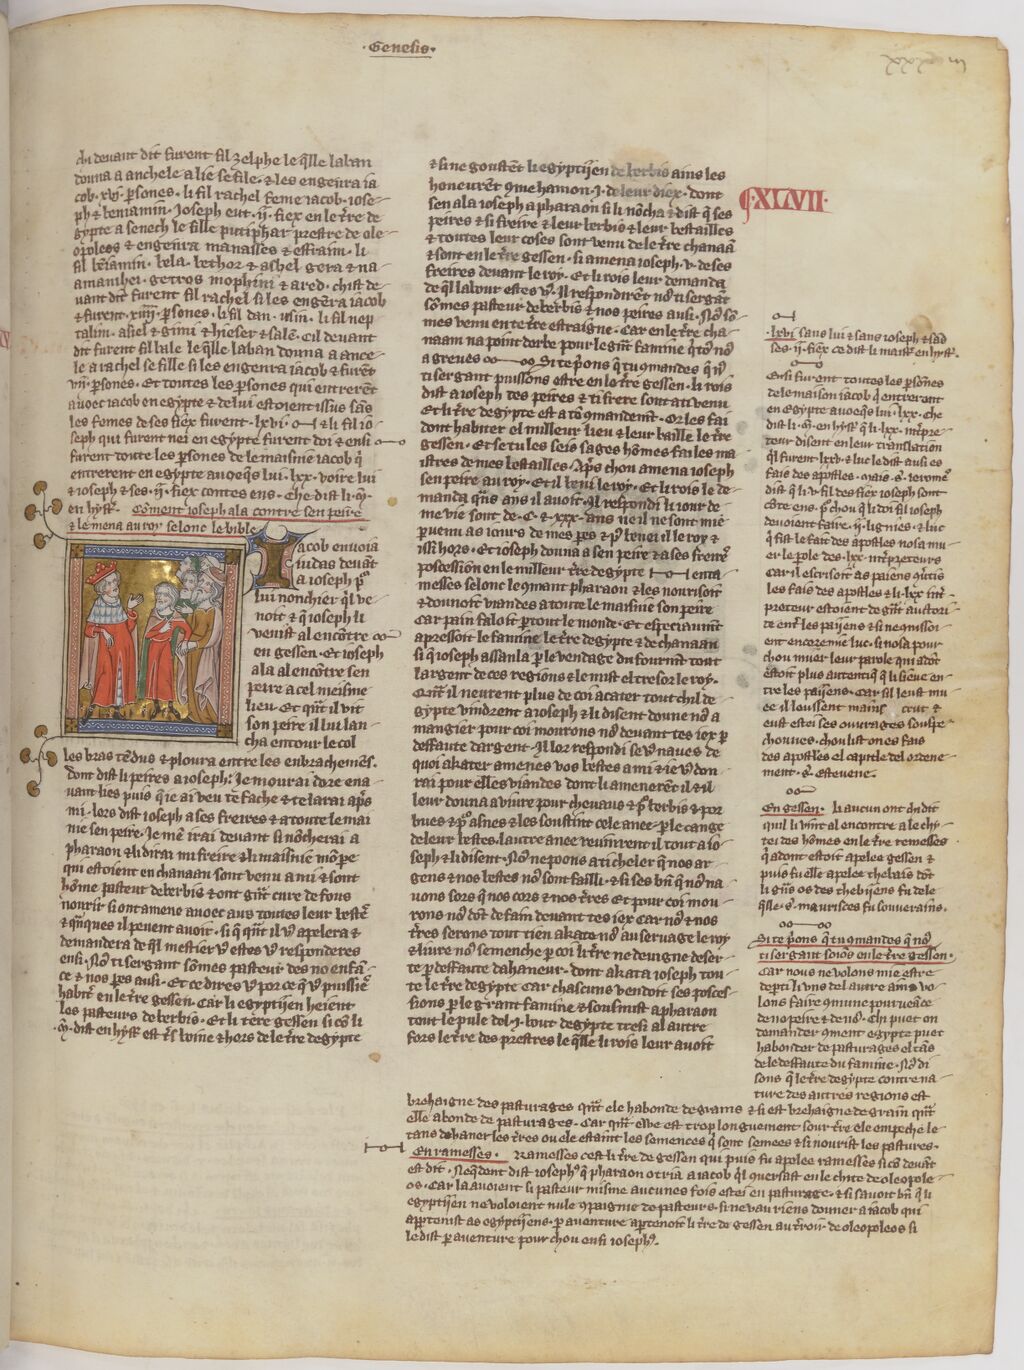 ·Genesis·
chi devant dit furent fil zelphe le q̃lle laban
donna a anchele a lie se file · & les engẽra ia
cob · xvj · p̃sones · li fil rachel feme iacob · iose
ph & beniamin · Joseph eut · ij · fiex en le t̃re de
gypte a senech le fille putiphar prestre de ole
opoleos & engenra manasses & effraim · li
fil bẽiamin · bela · bethor & asbel gera & na
amanihei · getros mophini & ared · chist de
vant dit furent fil rachel si les engẽra iacob
& furent · xiiij · p̃sones · li fil dan · usin · li fil nep
talim · asiel & gimi & hieser & salẽ · Cil devant
dit furent fil bale le q̃lle laban donna a ance
le a rachel se fille si les engenra iacob & furẽt
vij · p̃sones · Et toutes les p̃sones qui entrerẽt
avoec iacob en egypte & de lui estoient issus sãs
les femes de ses fiex furent · lxvi · & li fil io
seph qui furent nei en egypte furent doi & ensi
furent toute les p̃sones de le maisnie iacob q̃
entrerent en egypte avoeqes lui · lxx · voire lui
& ioseph & ses · ij · fiex contes ens · Che dist li · m̃ ·
en hyst̃ · Cõment ioseph ala contre sen peire
& le mena au roy selonc le bible
Iacob envoia
iudas devãt
a ioseph p̃
lui nonchier q̃l ve
noit & q̃ ioseph li
venist al encõtre
en gessen · Et ioseph
ala al encõtre sen
peire a cel meisme
lieu · Et qñt il vit
son peire il lui lan
cha entour le col
les bras tẽdus & ploura entre les enbrachemẽs ·
Dont dist li peires a ioseph · Je morrai dore ena
vant lies puis q̃ ie ai veu te fache & te larai ap̃s
mi · lors dist ioseph a ses freires & a toute le mai
nie sen peire · Je mẽ irai devant si nõcherai a
pharaon & li dirai mi freire & li maisnie mõ pe
qui estoient en chanaan sont venu a mi & sont
hõme pasteur de berbis & ont gñt cure de fous
nourir si ont amene avoec aus toutes leur bestẽ
& q̃nques il pevent avoir · si q̃ qñt il v̾ apelera &
demandera de q̃l mestier v̾ estes v̾ responderes
ensi · No̾ ti sergant sõmes pasteur des no enfã
ce & nos p̃es ausi · Et ce dires v̾ por ce q̃ v̾ puissiẽ
habit̃ en le t̃re gessen · Car li egyptijen heient
les pasteurs de berbis · Et li tere gessen si cõ li
· m̃ · dist en hyst̃ est t̃s boine & hors de le t̃re degypte
& si ne goustẽt li egyptijen de berbis ains les
honeurẽt q̃me hamon · j · de leur diex · dont
sen ala ioseph a pharaon si li nõcha & dist q̃ ses
peires & si freire & leur berbis & leur bestailles
& toutes leur coses sont venu de le t̃re chanaã
& sont en le t̃re gessen · si amena ioseph · v · de ses
freires devant le roy · Et li rois leur demanda
de q̃l labour estes v̾ · Il respondirẽt no̾ ti sergãt
sõmes pasteur de berbis & nos peires ausi · No̾ sõ
mes venu en te t̃re estraigne · Car en le t̃re cha
naam na point derbe pour le gñt famine q̃ to̾ no̾
a greves Si te p̃ons q̃ tu q̃mandes q̃ n̾
ti sergant puissons estre en le t̃re gessen · li rois
dist a ioseph tes peires & ti frere sont a ti venu
Et li t̃re degypte est a tõ q̃mandemẽt · Or les fai
dont habiter el milleur lieu & leur baille le t̃re
gessen · Et se tu les seis sages hõmes fai les ma
istres de mes bestailles · Ap̃s chou amena ioseph
sen peire au roy · Et il beni le roy · Et li rois le de
manda qñs ans il avoit · Il respondi li iour de
me vie sont de · C · & · xxx · ans ne il ne sont mie
p̃venu as iours de mes p̃es & p̾ benei il le roy &
issi hors · Et ioseph donna a sen peire & a ses freirẽ
possession en le milleur t̃re degypte enta
messes selonc le q̃mant pharaon & les nourisoit
& donnoit viandes a toute le maisnie son peire
Car pain faloit p̃tout le monde · Et especiaumẽt
apressoit le famine le t̃re degypte & de chanaan
si q̃ ioseph assanla p̃ le vendage du fourmẽt tout
largent de ces regions & le mist el tresor le roy ·
Qñt il neurent plus de coi acater tout chil de
gypte vindrent a ioseph & li disent donne no̾ a
mangier pour coi mourons no̾ devant tes iex p̃
deffaute dargent · Il lor respondi se v̾ naves de
quoi akater amenes vos bestes a mi & ie v̾ don
rai pour elles viandes dont li amenerẽt il & il
leur donna a vivre pour chevaus & p̾ berbis & por
bues & p̾ asnes & les soustint cele anee · p̃ le cange
de leur bestes · lautre anee revinrent il tout a io
seph & li disent · No̾ ne poons a ti cheler q̃ nos ar
gens & nos bestes no̾ sont failli · & si ses bñ q̃ no̾ na
vons fors q̃ nos cors & nos t̃res Et pour coi mou
rons no̾ dõt de fain devant tes iex Car no̾ & nos
t̃res serons tout tien akate no̾ au servage le roy
& livre no̾ semenche p̃ coi li t̃re ne devigne deser
te p̃ deffaute dahaneur · dont akata ioseph tou
te le t̃re degypte Car chascuns vendoit ses posces
sions p̃ le grant famine & sousmist a pharaon
tout le pule del · j · bout degypte tresi al autre
fors le t̃re des prestres le q̃lle li rois leur avoit
XLVII ·
· lxvi · sans lui & sans ioseph & sãs
ses · ij · fiex ce dist li maistẽ en hyst̃ ·
Ensi furent toutes les p̃sones
de le maison iacob q̃ entrerent
en egypte avoeqes lui · lxx · che
dist li · m̃ · en hyst̃ q̃ li · lxx · int̃pre
teur disent en leur translation
q̃l furent lxxv · & luc le dist ausi es
fais des apostles · mais · s · ierome
dist q̃ li · v · fil des fiex ioseph sont
cõte ens · p̃ chou q̃ li doi fil ioseph
devoient faire · ij · lignies · & luc
q̃ fist le fait des apostles nosa mu
er le pole des · lxx · int̃preteurs
Car il escrisoit as paiens q̃tis
les fais des apostles & li · lxx · int̃
preteur estoient de gñt auctori
te entẽ les paijens & si ne q̃issoi
ent encore mie luc · si nosa pour
chou muer leur parole qui adõt
estoit plus autentiq̃ q̃ li sieve en
tre les paijens · Car sil leust mu
ee il leussent mains creut &
eust estei ses ouvrages souspe
chonnes · chou list on es fais
des apostles el capitle del ordene
ment · s · estevene ·
En gessen · li aucun ont dit
quil li vint al encontre a le chy
tei des hõmes en le t̃re remesses
q̃ adont estoit apelee gessen &
puis fu elle apelee thebais dõt
li gñs os des thebijens fu de le
q̃lle · s · maurisces fu souverains ·
Si te p̃ons q̃ tu q̃mandes q̃ no̾
ti sergant soiõs en le t̃re gessen ·
Car nous ne volons mie estre
departi li uns del autre ains vo
lons faire q̃mune pourveãce
de no peire & de no̾ · Chi puet on
demander q̃ment egypte puet
habonder de pasturages el tãs
de le deffaute du famine · No̾ di
sons q̃ le t̃re degypte contre na
ture des autres regions est
brehaigne des pasturages qñt ele habonde de grains & si est brehaigne de grain qñt
elle abonde de pasturages · Car qñt ewe est trop longuement sour t̃re ele empeche le
tans dahaner les t̃res ou ele estaint les semences q̃ sont semees & si nourist les pastures ·
En ramesses · Ramesses cest li t̃re de gessen qui puis fu apelee ramesses si cõ devãt
est dit · Neq̃dent dist ioseph̾ q̃ pharaon otria a iacob q̃l q̃versast en le chite de oleopole
os · Car la avoient si pasteur misme aucunes fois estei en pasturage · & si savoit bñ q̃ li
egyptijen ne voloient nule q̃paignie de pasteurs · si ne vau riens donner a iacob qui
ap̃tenist as egyptijens · p̃ aventure ap̃tenoit li t̃re de gessen au t̃roir de oleopoleos si
le dist p̃ aventure pour chou ensi ioseph̾ ·